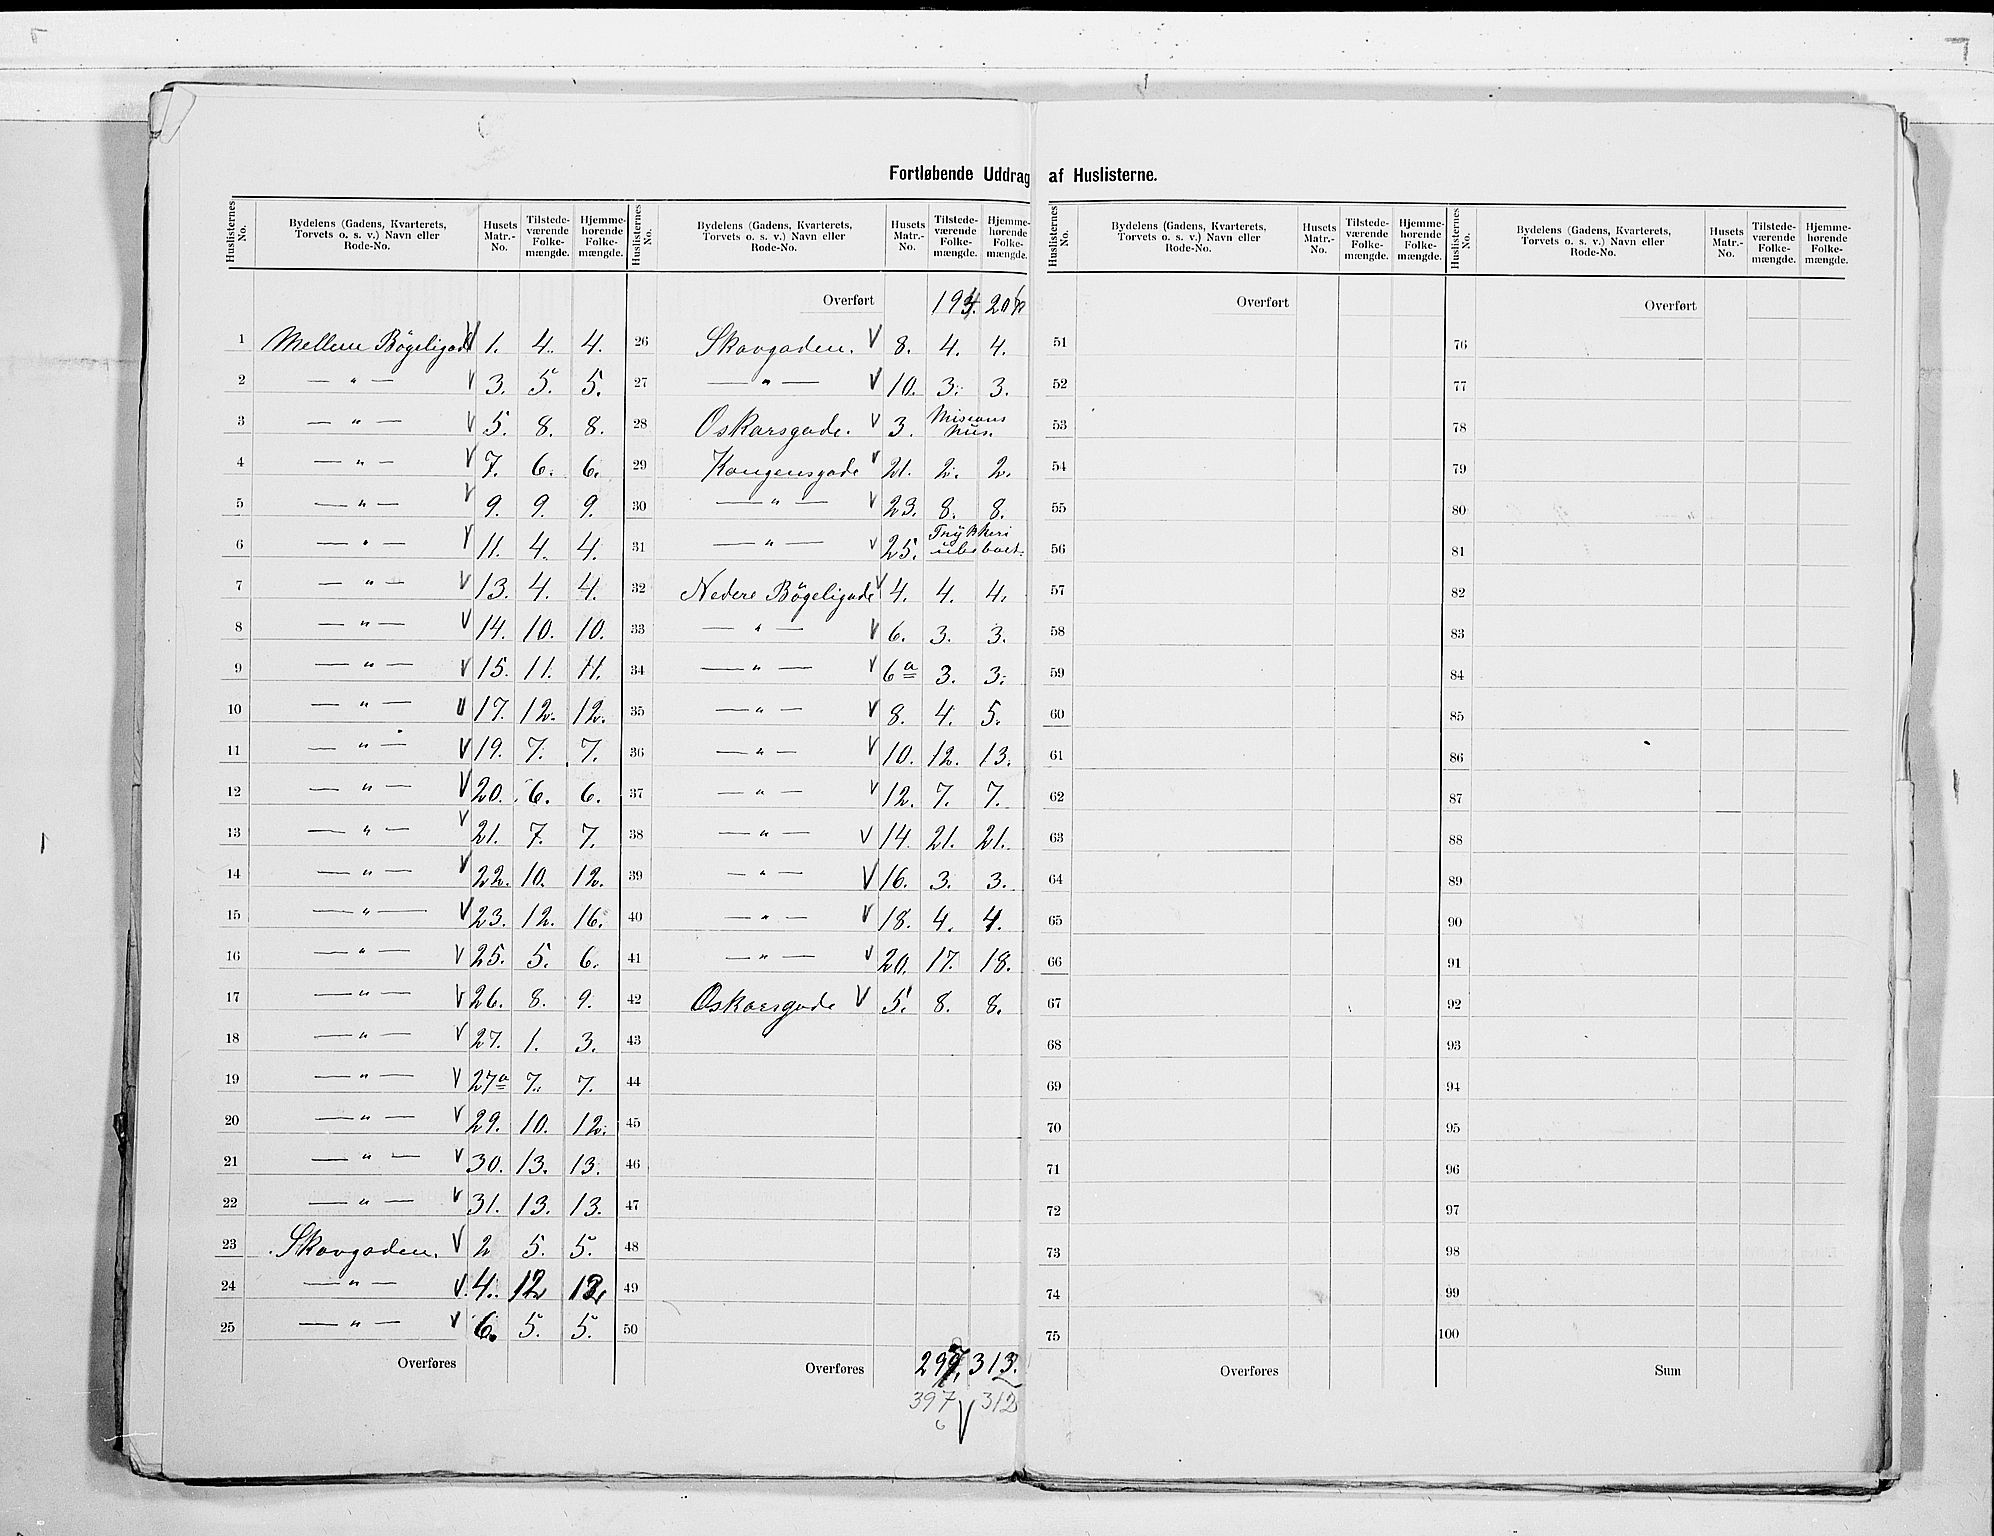 Fortløbende Uddrag af Huslisterne.
Huslisternes No. | Bydelens (Gadens, Kvarterets, Torvets o. s. v.) Navn eller Rode-No. | Husets Matr.-No. | Tilstedeværende Folkemængde. | Hjemmehørende Folkemængde.
1 Mellem Bögeligade V 1. 4. 4.
2 — " — V 3. 5. 5.
3 — " — V 5. 8. 8.
4 — " — V 7. 6. 6.
5 — " — V 9. 9. 9.
6 — " — V 11. 4. 4.
7 — " — V 13. 4. 4.
8 — " — V 14. 10. 10.
9 — " — V 15. 11. 11.
10 — " — V 17. 12. 12.
11 — " — V 19. 7. 7.
12 — " — V 20. 6. 6.
13 — " — V 21. 7. 7.
14 — " — V 22. 10. 12.
15 — " — V 23. 12. 16.
16 — " — V 25. 5. 6.
17 — " — V 26. 8. 9.
18 — " — V 27. 1. 3.
19 — " — V 27a 7. 7.
20 — " — V 29. 10. 12.
21 — " — V 30. 13. 13.
22 — " — V 31. 13. 13.
23 Skovgaden. V 2 5. 5.
24 — " — V 4. 12
25 — " — V 6. 5. 5.
Overføres
Huslisternes No. | Bydelens (Gadens, Kvarterets, Torvets o. s. v.) Navn eller Rode-No. | Husets Matr.-No. | Tilstedeværende Folkemængde. | Hjemmehørende Folkemængde.
Overført 194.
26 Skovgaden. V 8. 4. 4.
27 — " — V 10. 3. 3.
28 Oskarsgade. V 3. Misions hus.
29 Kongensgade V 21. 2. 2.
30 — " — V 23. 8. 8.
31 — " — V 25. Trykkeri ubeboet.
32 Nedere Bögeligade V 4. 4. 4.
33 — " — V 6. 3. 3.
34 — " — V 6a 3. 3.
35 — " — V 8. 4. 5.
36 — " — V 10. 12. 13.
37 — " — V 12. 7. 7.
38 — " — V 14. 21. 21.
39 — " — V 16. 3. 3.
40 — " — V 18. 4. 4.
41 — " — V 20. 17. 18.
42 Oskarsgade V 5. 8. 8.
43
44
45
46
47
48
49
50
Overføres 297. 313.
397 V 312
6
Huslisternes No. | Bydelens (Gadens, Kvarterets, Torvets o. s. v.) Navn eller Rode-No. | Husets Matr.-No. | Tilstedeværende Folkemængde. | Hjemmehørende Folkemængde.
Overført
51
52
53
54
55
56
57
58
59
60
61
62
63
64
65
66
67
68
69
70
71
72
73
74
75
Overføres
Huslisternes No. | Bydelens (Gadens, Kvarterets, Torvets o. s. v.) Navn eller Rode-No. | Husets Matr.-No. | Tilstedeværende Folkemængde. | Hjemmehørende Folkemængde.
Overført
76
77
78
79
80
81
82
83
84
85
86
87
88
89
90
91
92
93
94
95
96
97
98
99
100
Sum